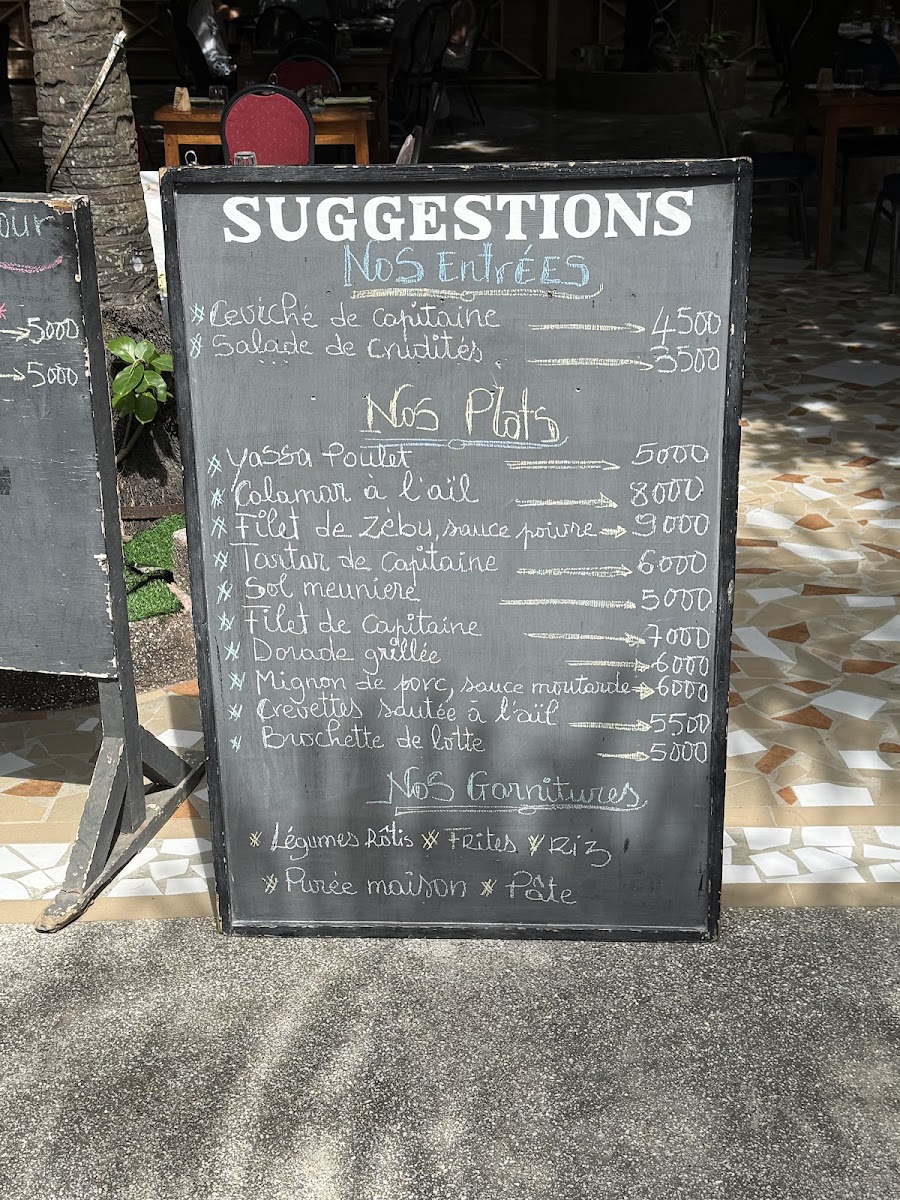 our
5000
5000
SUGGESTIONS
Nos Entrées
Ceviche de capitaine 4500
Salade de crudités 3500
Nos Plats
Yassa Poulet 5000
Calamar à l'aïl 8000
Filet de Zébu, sauce poivre 9000
Tartar de capitaine 6000
Sol meuniere 5000
Filet de capitaine 7000
Dorade grillée 6000
Mignon de porc, sauce moutarde 6000
Crevettes sautée à l'aïl 5500
Brochette de lotte 5000
Nos Garnitures
Légumes Rôtis Frites Riz
Purée maison Pâte